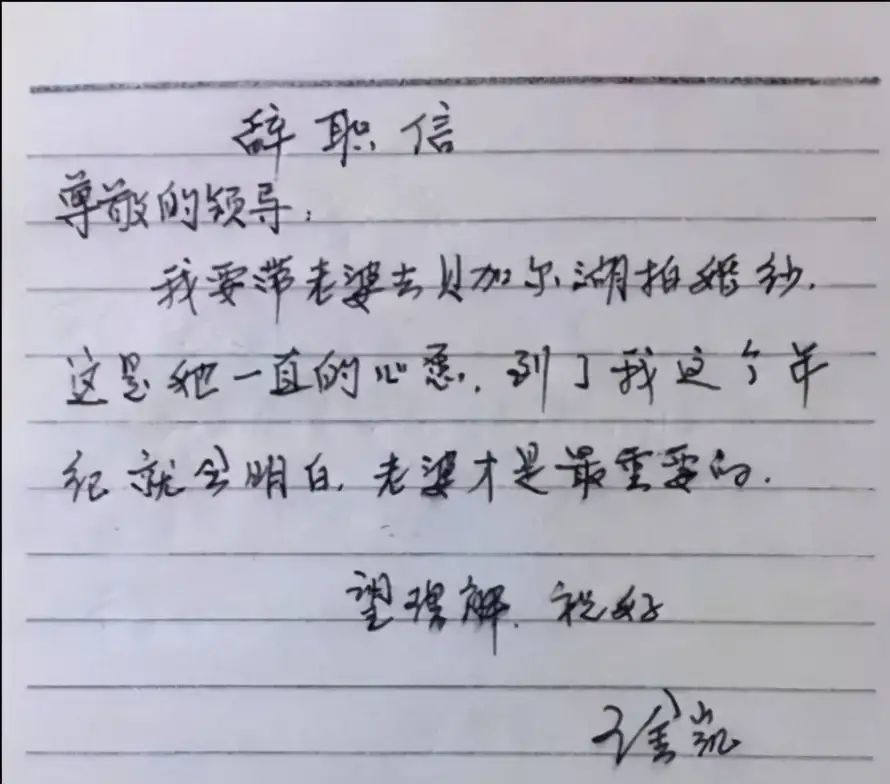 辞职信
尊敬的领导：
我要带老婆去贝加尔湖拍婚纱.
这是她一直的心愿, 到了我这个年
纪就会明白, 老婆才是最重要的.
望理解. 祝好
徐凯